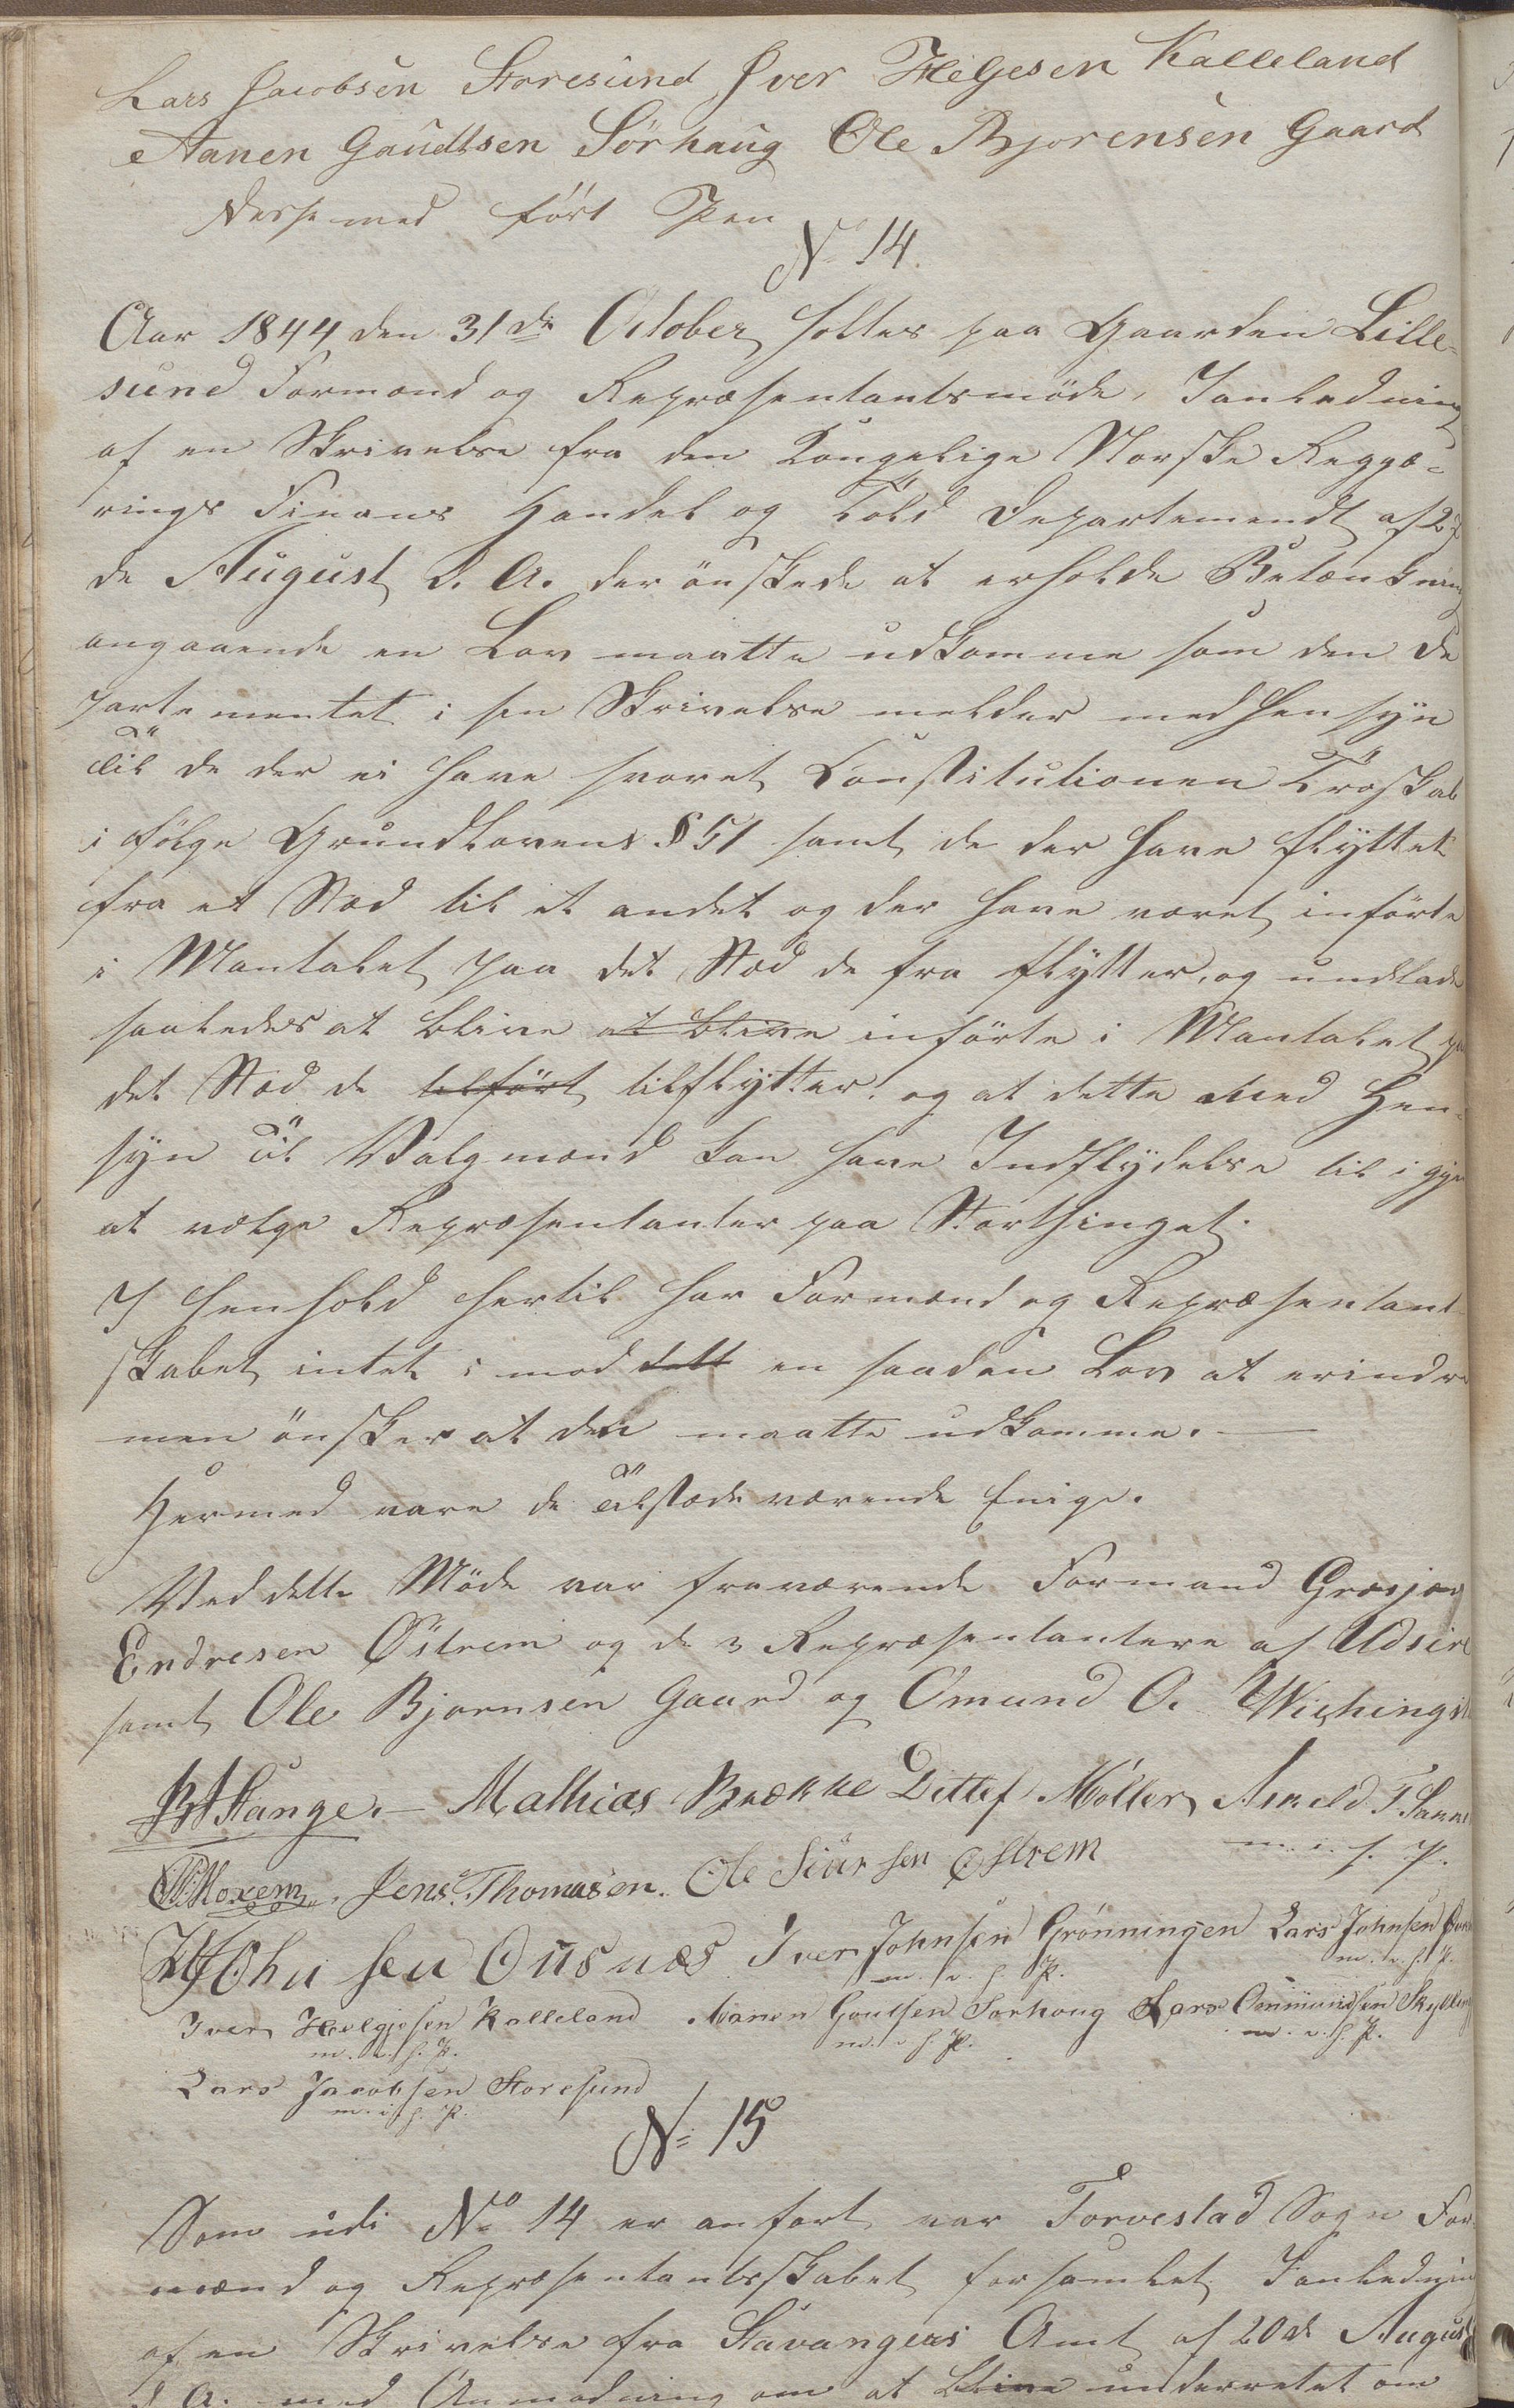 Lars Jacobsen Storesund Iver Helgesen Kalleland
Aanen Gaudtsen Sörhaug Ole Bjorensen Gaard
med ført Pen
No 14.
Aar 1844 den 31de October holtes paa Gaarden Lille-
sund Formænd og Repræsentantsmöde, Ianledning
af en Skrivelse fra den Kongelige Norske Reggæ-
rings Finans Handel og Told Departemendt af 27
de August d. A. der önskede at erholde Betænkning
angaaende en Lov maatte udkomme som den De
partementet i sin Skrivelse melder med Hensyn
Til de der ei have svoret Constitutionen Troskab
i fölge Grundlovens § 51 samt de der have flyttet
fra et Stæd til et andet og der have været införte
i Mantalet paa det Stæd de fra flytter, og undlade
saaledes at blive at blive införte i Mantalet pa
det Stæd de tilfört tilflytter, og at dette Med Hen-
syn Til Valgmænd kan have Indflydelse til igjen
at vælge Repræsentanter paa Storthinget.
I Henhold hertil har Formænd og Repræsentant
skabet intet imod dett en saadan Lov at erindre
men önsker at den maatte udkomme.
Hermed vare de Tilstædeværende Enige.
Ved dette Möde var fraværende Formand
Endresen Östrem og de 3 Repræsentantere af Udsire
samt Ole Bjornsen Gaard og Omund O.
Stange. Mathias Brække Ditlef Möller,
m. i. f. P.
Jens Thomasen. Ole Siursen Østrem
Johnsen Iver Johnsen Grönningen Lars Johnsen
m. v. h. P. m. v. h. P.
Iver Helgesen Kalleland Aanen Goutsen Sorhoug Lars Ommundsen
m. v. h. P. m. v. h. P. m. v. h. P.
Lars Jacobsen Storesund
m. i. h. P.
No 15
Som udi No 14 er anfort var Torvestad Sogn For-
mænd og Repræsentantsskabet forsamlet Ianledning
af en Skrivelse fra Stavangers Amt af 20de August
d. A. med Anmodning om at blive underrettet om